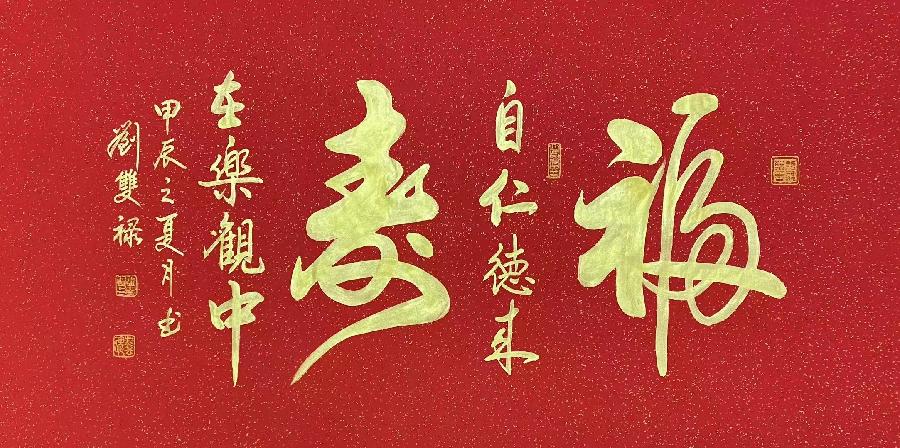 福
自仁德来
寿
在樂觀中
甲辰之夏月书
劉雙禄